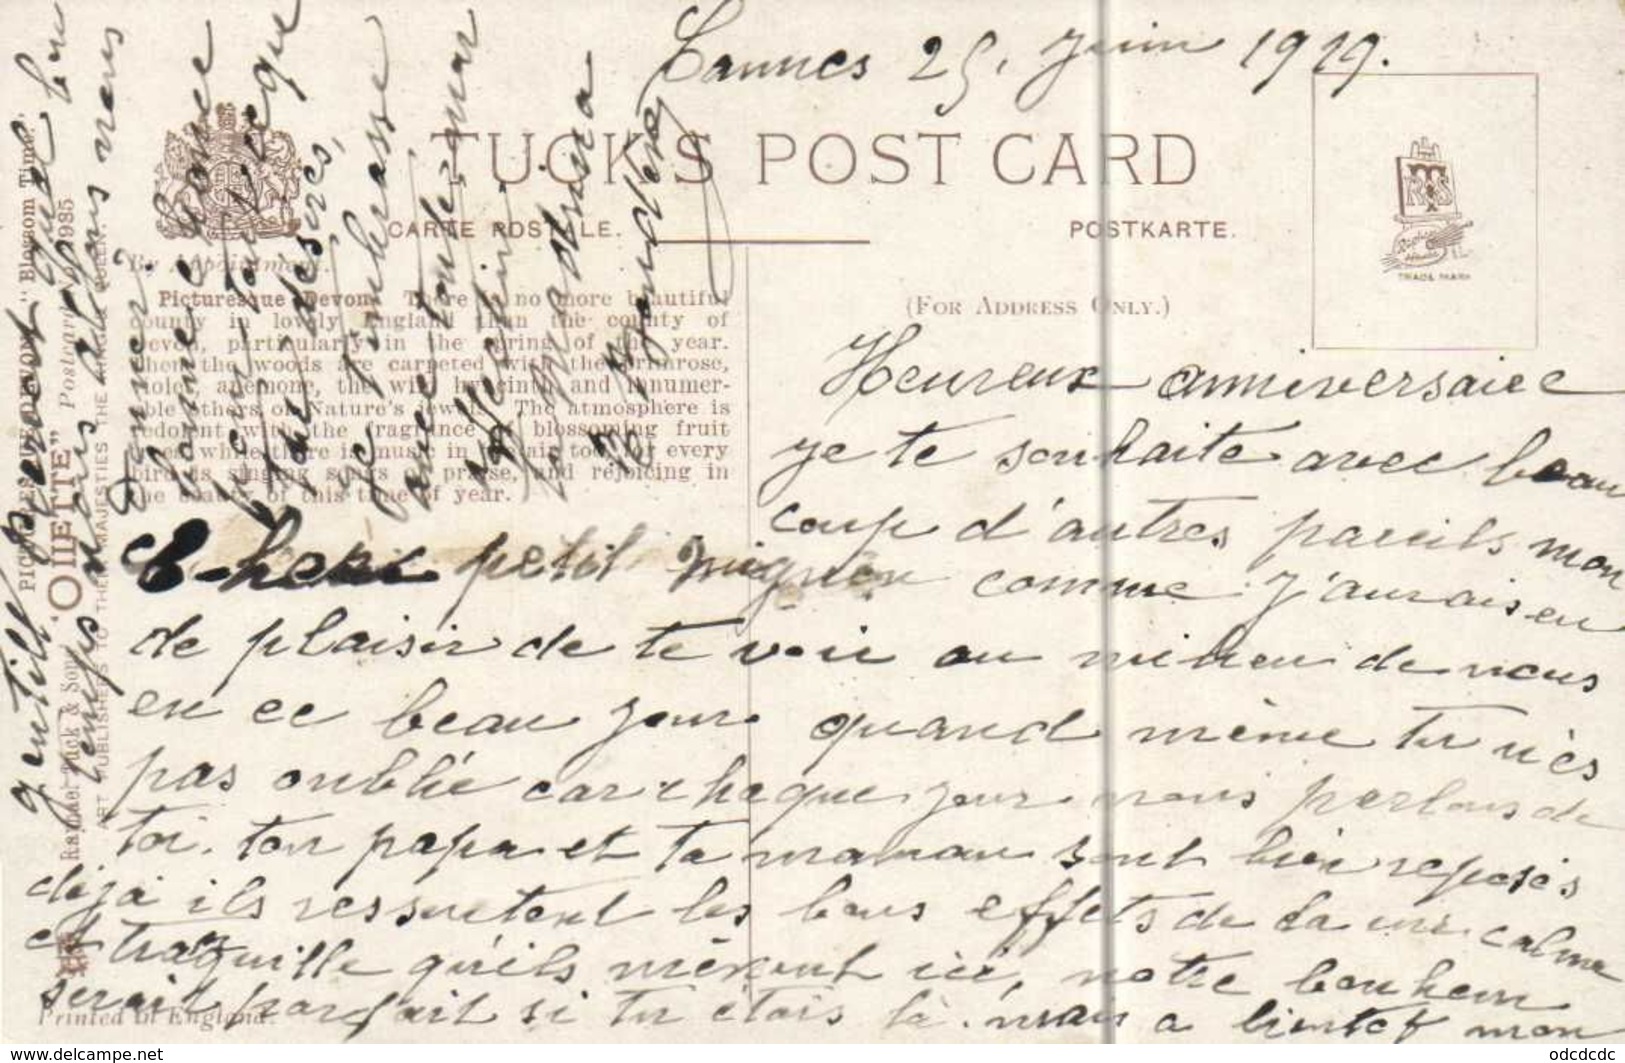 Cannes 25. Juin 1919.
TUCK'S POST CARD
CARTE POSTALE.
POSTKARTE.
By Appointment.
(FOR ADDRESS ONLY.)
TRADE MARK
Picturesque Devon. There is no more beautiful
county in lovely England than the county of
Devon, particularly in the spring of the year.
Then the woods are carpeted with the primrose,
violet, anemone, the wild hyacinth and innumer-
able others of Nature's jewels. The atmosphere is
redolent with the fragrance of blossoming fruit
trees while there is music in the rain too, for every
bird is singing songs of praise, and rejoicing in
the beauty of this time of year.
Heureux anniversaire
je te souhaite avec beau
coup d'autres pareils mon
cheri petit mignon comme j'aurais eu
de plaisir de te voir au milieu de nous
en ce beau jour quand même tu n'es
pas oublié car chaque jour nous parlons de
toi. ton papa et ta maman sont bien reposés
déjà ils ressentent les bons effets de la vie calme
et tranquille qu'ils mènent ici, notre bonheur
serait parfait si tu étais là. mais a bientot mon
gentill
temps nous allons nous
bonne chance
que tu
les desires,
je t'embrasse
avec toute mon
affection
PICTURESQUE DEVON. "Blossom Time."
"OILETTE" Postcard No. 9985
Raphael Tuck & Sons
ART PUBLISHERS TO THEIR MAJESTIES THE KING & QUEEN.
Printed in England.
odcdcdc